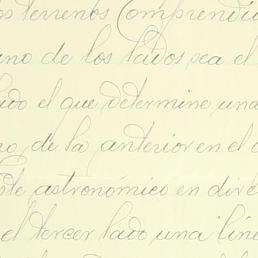 os terrenos comprendid
uno de los lados sea el
lado el que determine una
no de la anterior en el
ste astronómico en dire
el tercer lado una líne